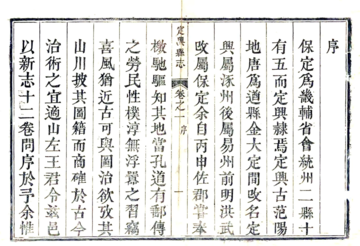 序
保定為畿輔省會統州二縣十
有五而定興隸焉定興古范陽
地唐為道縣金大定間改名定
興屬涿州後屬易州前明洪武
改屬保定余自丙申佐郡嘗奉
定興縣志
卷之一
序
檄馳驅知其地當孔道有郵傳
之勞民性樸淳無浮囂之習竊
喜風猶近古可與圖治欲攷其
山川披其圖籍而商榷於古今
治術之宜適山左王君令茲邑
以新志十二卷問序於予余惟